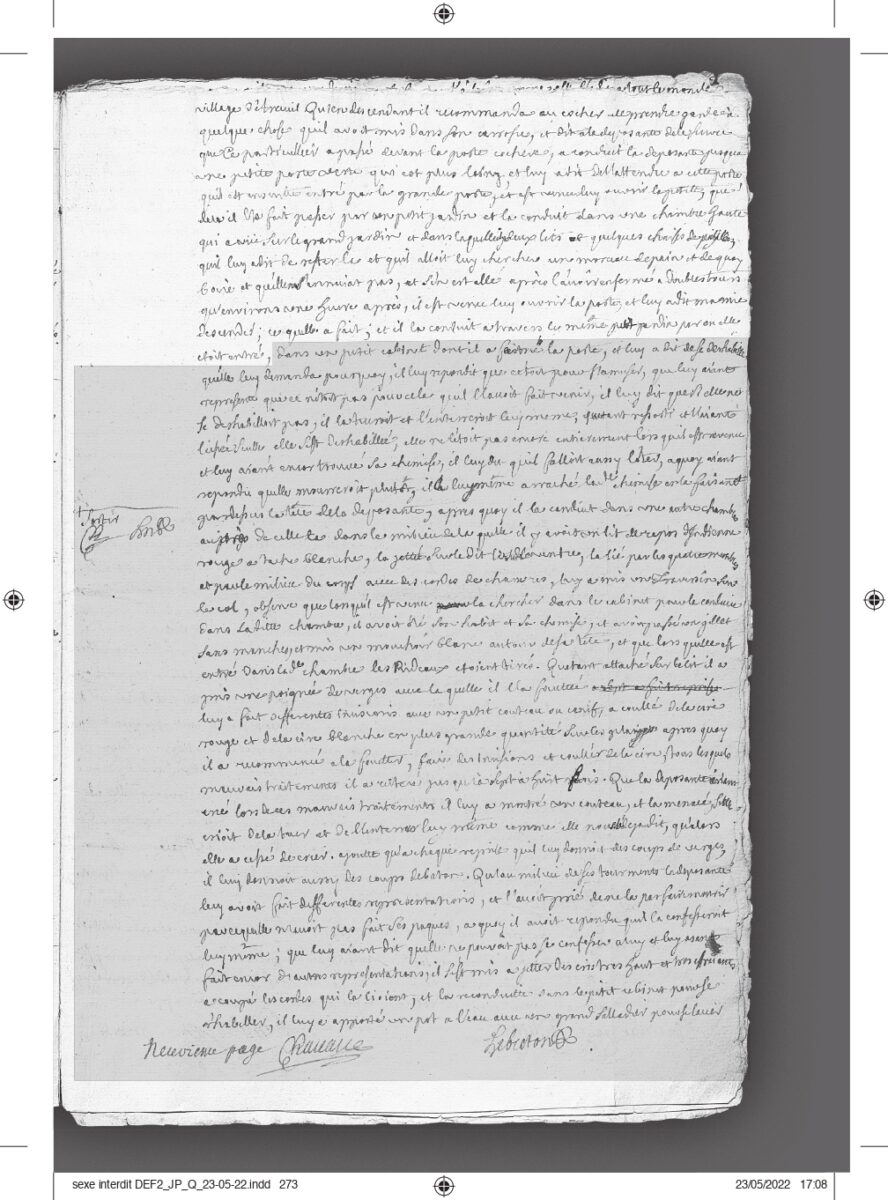 village d'Arcueil Qu'en descendant il recommanda au cocher de prendre garde à
quelque chose quil avoit mis dans son carrosse, et dit a la deposante de le suivre
que Ce particulier a passé devant la porte cochere, a conduit la deposante jusqua
une petite porte verte qui est plus loing et luy a dit de l'attendre a cette porte
quil est ensuitte entré par la grande porte, et est venu luy ouvrir la petite, que
de la il l'a fait passer par un petit jardin et la conduit dans une chambre haute
qui a vüe sur le grand jardin et dans laquelle deux lits et quelques chaises de paille,
quil luy a dit de rester la et quil alloit luy chercher un morceau de pain et de quoy
boire et quelle ne s'ennuiat pas, et s'en est allé après l'avoir enfermé a doubles tours
qu'environs une heure après, il est venu luy ouvrir la porte, et luy a dit ma mie
descendes; ce quelle a fait; et il la conduit a travers le meme petit jardin par ou elle
etoit entré, dans un petit cabinet dont il a fermé la porte, et luy a dit de se deshabiller
quelle luy demanda pourquoy, il luy repondit que cetoit pour s'amuser, que luy aiant
representé que ce n'etoit pas pour cela quil l'avoit fait venir, il luy dit que si elle ne
se deshabilloit pas, il la tueroit et l'enterreroit luy meme, quetant ressorti et l'aiant
laissée seulle elle s'est deshabillée, elle ne l'etoit pas encore entierement lors quil est revenu
et luy aiant encor trouvé sa chemise, il luy dit quil falloit aussy l'oter, a quoy aiant
repondu quelle mourreroit plutot, il luy meme a arraché la de chemise en la faisant
par dessus la tête de la deposante, après quoy il la conduit dans une autre chambre
a coté de celle la dans le milieu de la quelle il y avoit un lit de repos d'indienne
rouge a tache blanche, la jettée sur le dit lit ventre, la lié par les quatre membres
et par le milieu du corps avec des cordes de chanvres, luy a mis un traversin sur
le col, observe que lorsqu'il est venu la chercher dans le cabinet pour la conduire
dans la ditte chambre, il avoit oté son habit et sa chemise, et avoit passé un gillet
sans manches, et mis un mouchoir blanc autour de sa tête, et que lors quelle est
entré dans la de chambre les Rideaux etoient tirés. Quetant attaché sur le lit il a
pris une poignée de verges avec la quelle il l'a fouettée
luy a fait differentes incisions avec un petit couteau ou canif, a coullé de la cire
rouge et de la cire blanche en plus grande quantité sur les playes après quoy
il a recommencé a la fouetter, faire des incisions et couller de la cire, tous lesquels
mauvais traitements il a réiteré jusqu'à sept à huit fois. Que la deposante aiant
crié lors de ces mauvais traitements il luy a montré un couteau, et la menacé, si elle
crioit de la tuer et de l'enterrer luy même comme elle nous a deja dit, qu'alors
elle a cessé de crier. ajoutte qu'a chaque reprise quil luy donnoit des coups de verges,
il luy donnoit aussy des coups de baton. Qu'au milieu de ses tourments la deposante
luy avoit fait differentes representations, et l'avoit prié de ne la pas faire mourir
parce quelle n'avoit pas fait ses paques, a quoy il avoit repondu quil la confesseroit
luy même; que luy aiant dit quelle ne pouvait pas se confesser a luy et luy aiant
fait encor d'autres representations, il s'est mis a jetter des cris tres haut et tres effraiants
a coupé les cordes qui la lioient, et la reconduitte dans le petit cabinet pour se
rhabiller, il luy a apporté un pot a l'eau avec un grand salladier pour se laver
Neuvieme page
sexe interdit DEF2_JP_Q_23-05-22.indd 273
23/05/2022 17:08